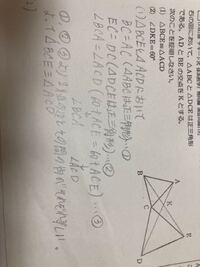 右の図において, △ABC と △DCE は正三角形
である。AD と BE の交点を K とする。
次のことを証明しなさい。
(1) △BCE≡△ACD
(2) ∠DKE=60°
A
B
C
D
E
K
(1) △BCEと△ACDにおいて
BC=AC (△ABCは正三角形)…①
EC=DC (△DCEは正三角形)…②
∠BCE=∠ACD (60°+∠ACE=60°+∠ACE)…③
∠BCA ∠ACD
①②③より2組の辺とその間の角がそれぞれ等しい。
よって△BCE≡△ACD